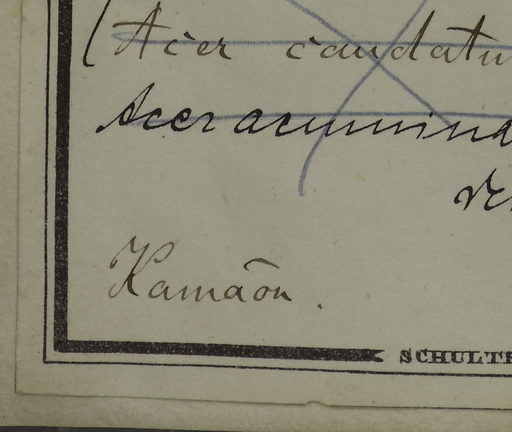 (Acer caudatu
Acer acumina
Kamāon.
SCHULTE